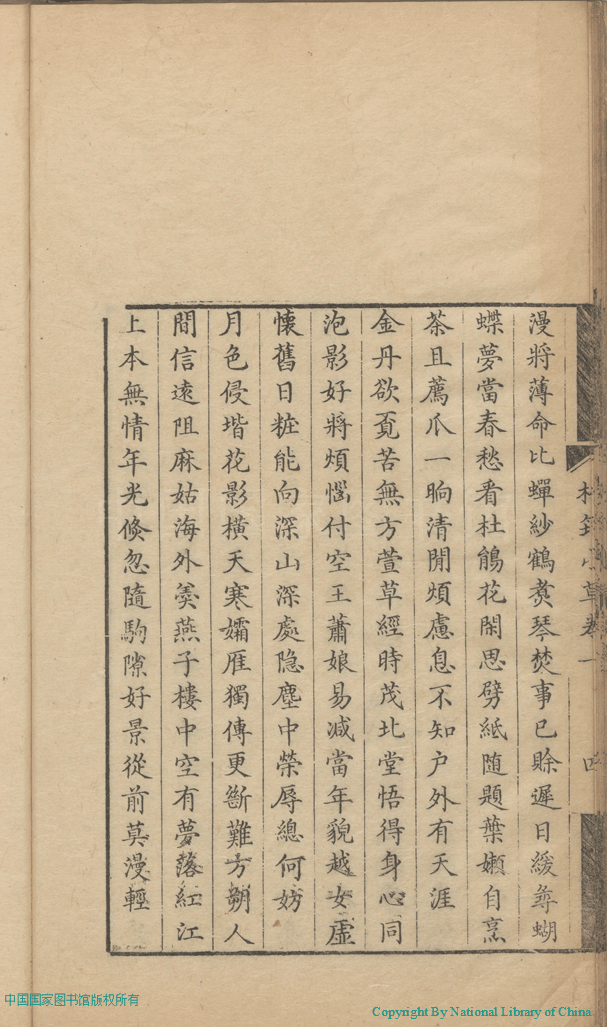 小草卷一
漫將薄命比蟬紗鶴煑琴焚事已賒遲日緩尋蝴
蝶夢當春愁看杜鵑花閑思劈紙随題葉嬾自烹
茶且薦爪一晌清閒煩慮息不知户外有天涯
金丹欲覔苦無方萱草經時茂北堂悟得身心同
泡影好將煩惱付空王蕭娘易减當年貌越女虛
懷舊日粧能向深山深處隐塵中榮辱總何妨
月色侵堦花影橫天寒孀雁獨傳更斷難方朔人
間信遠阻麻姑海外羮燕子樓中空有夢落紅江
上本無情年光倐忽隨駒隙好景從前莫漫輕
中国国家图书馆版权所有
Copyright By National Library of China